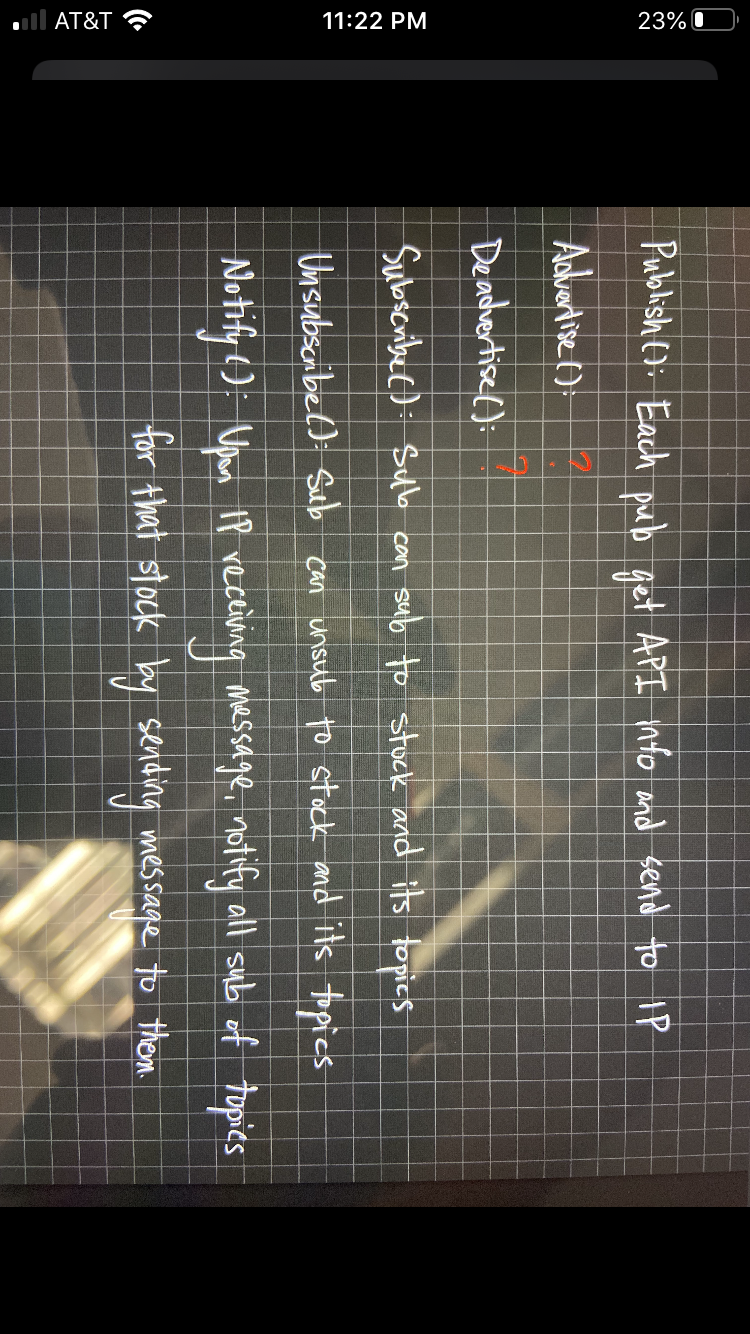 AT&T 11:22 PM 23%
Publish(): Each pub get API info and send to IP
Advertise(): ?
Deadvertise(): ?
Subscribe(): Sub can sub to stock and its topics
Unsubscribe(): Sub can unsub to stock and its topics
Notify(): Upon IP receiving message, notify all sub of topics
for that stock by sending message to them.